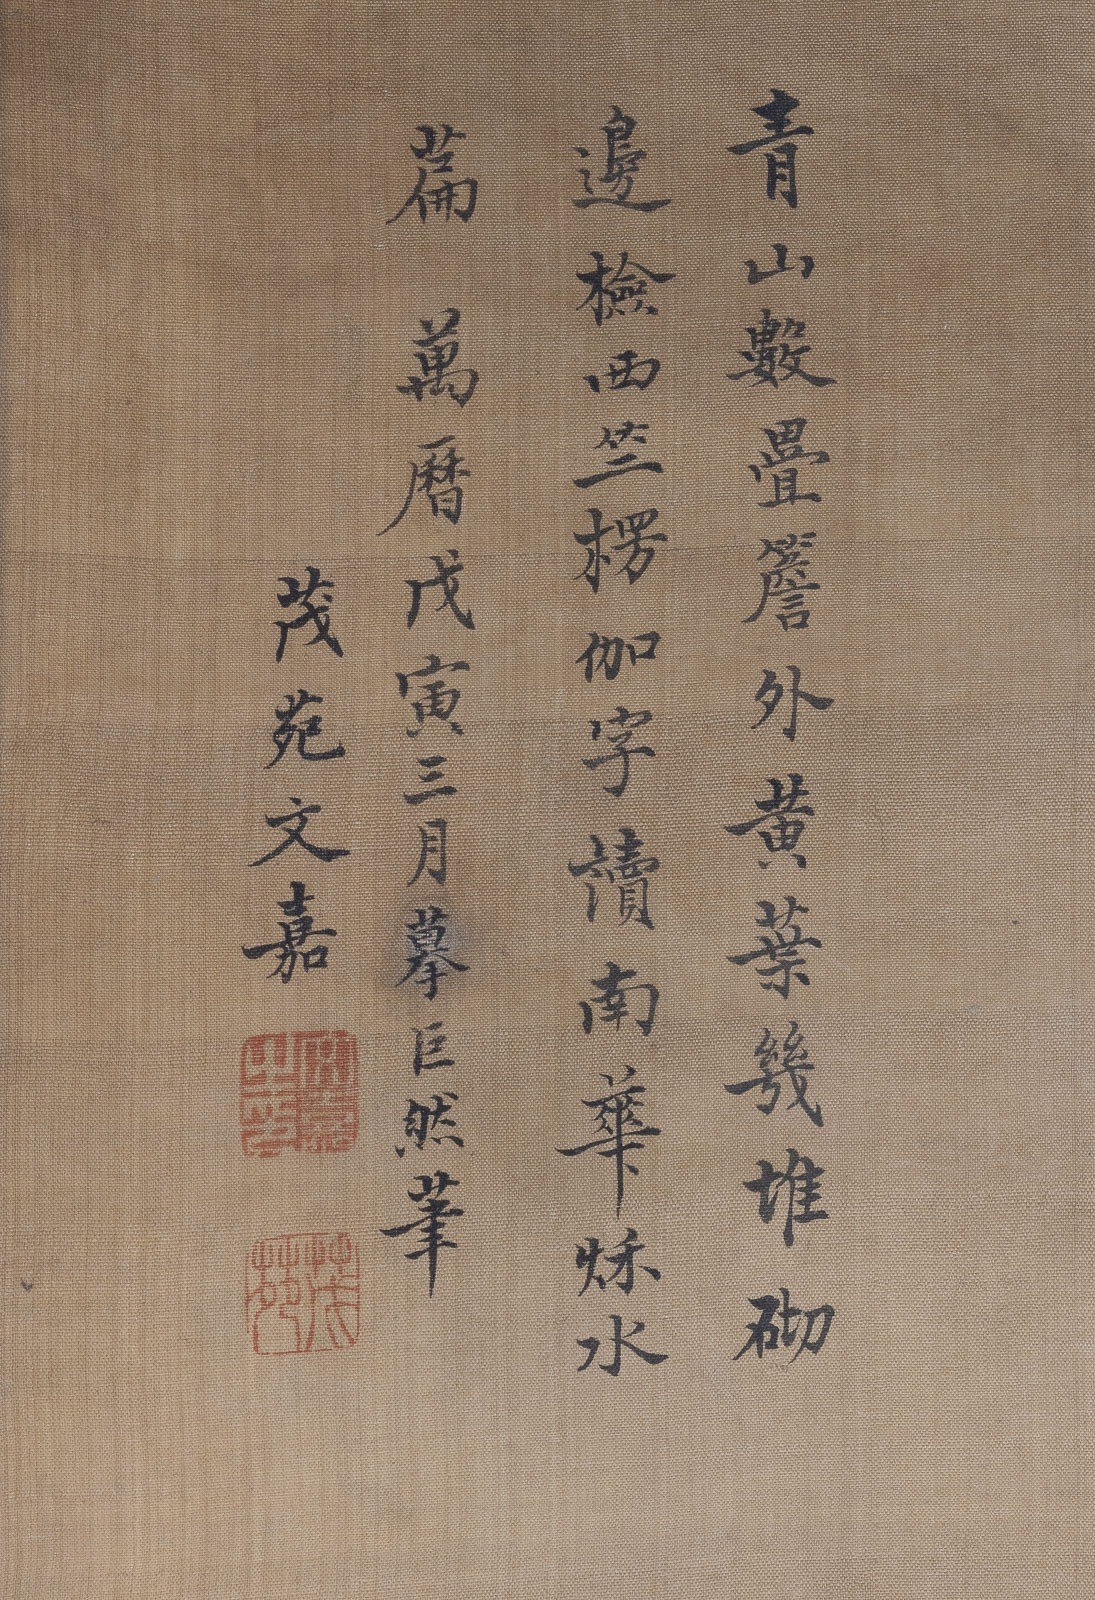 青山數疊簷外黃葉幾堆砌
邊檢西竺楞伽字讀南華秌水
篇 萬曆戊寅三月摹巨然筆
茂苑文嘉
文嘉之印
茂苑